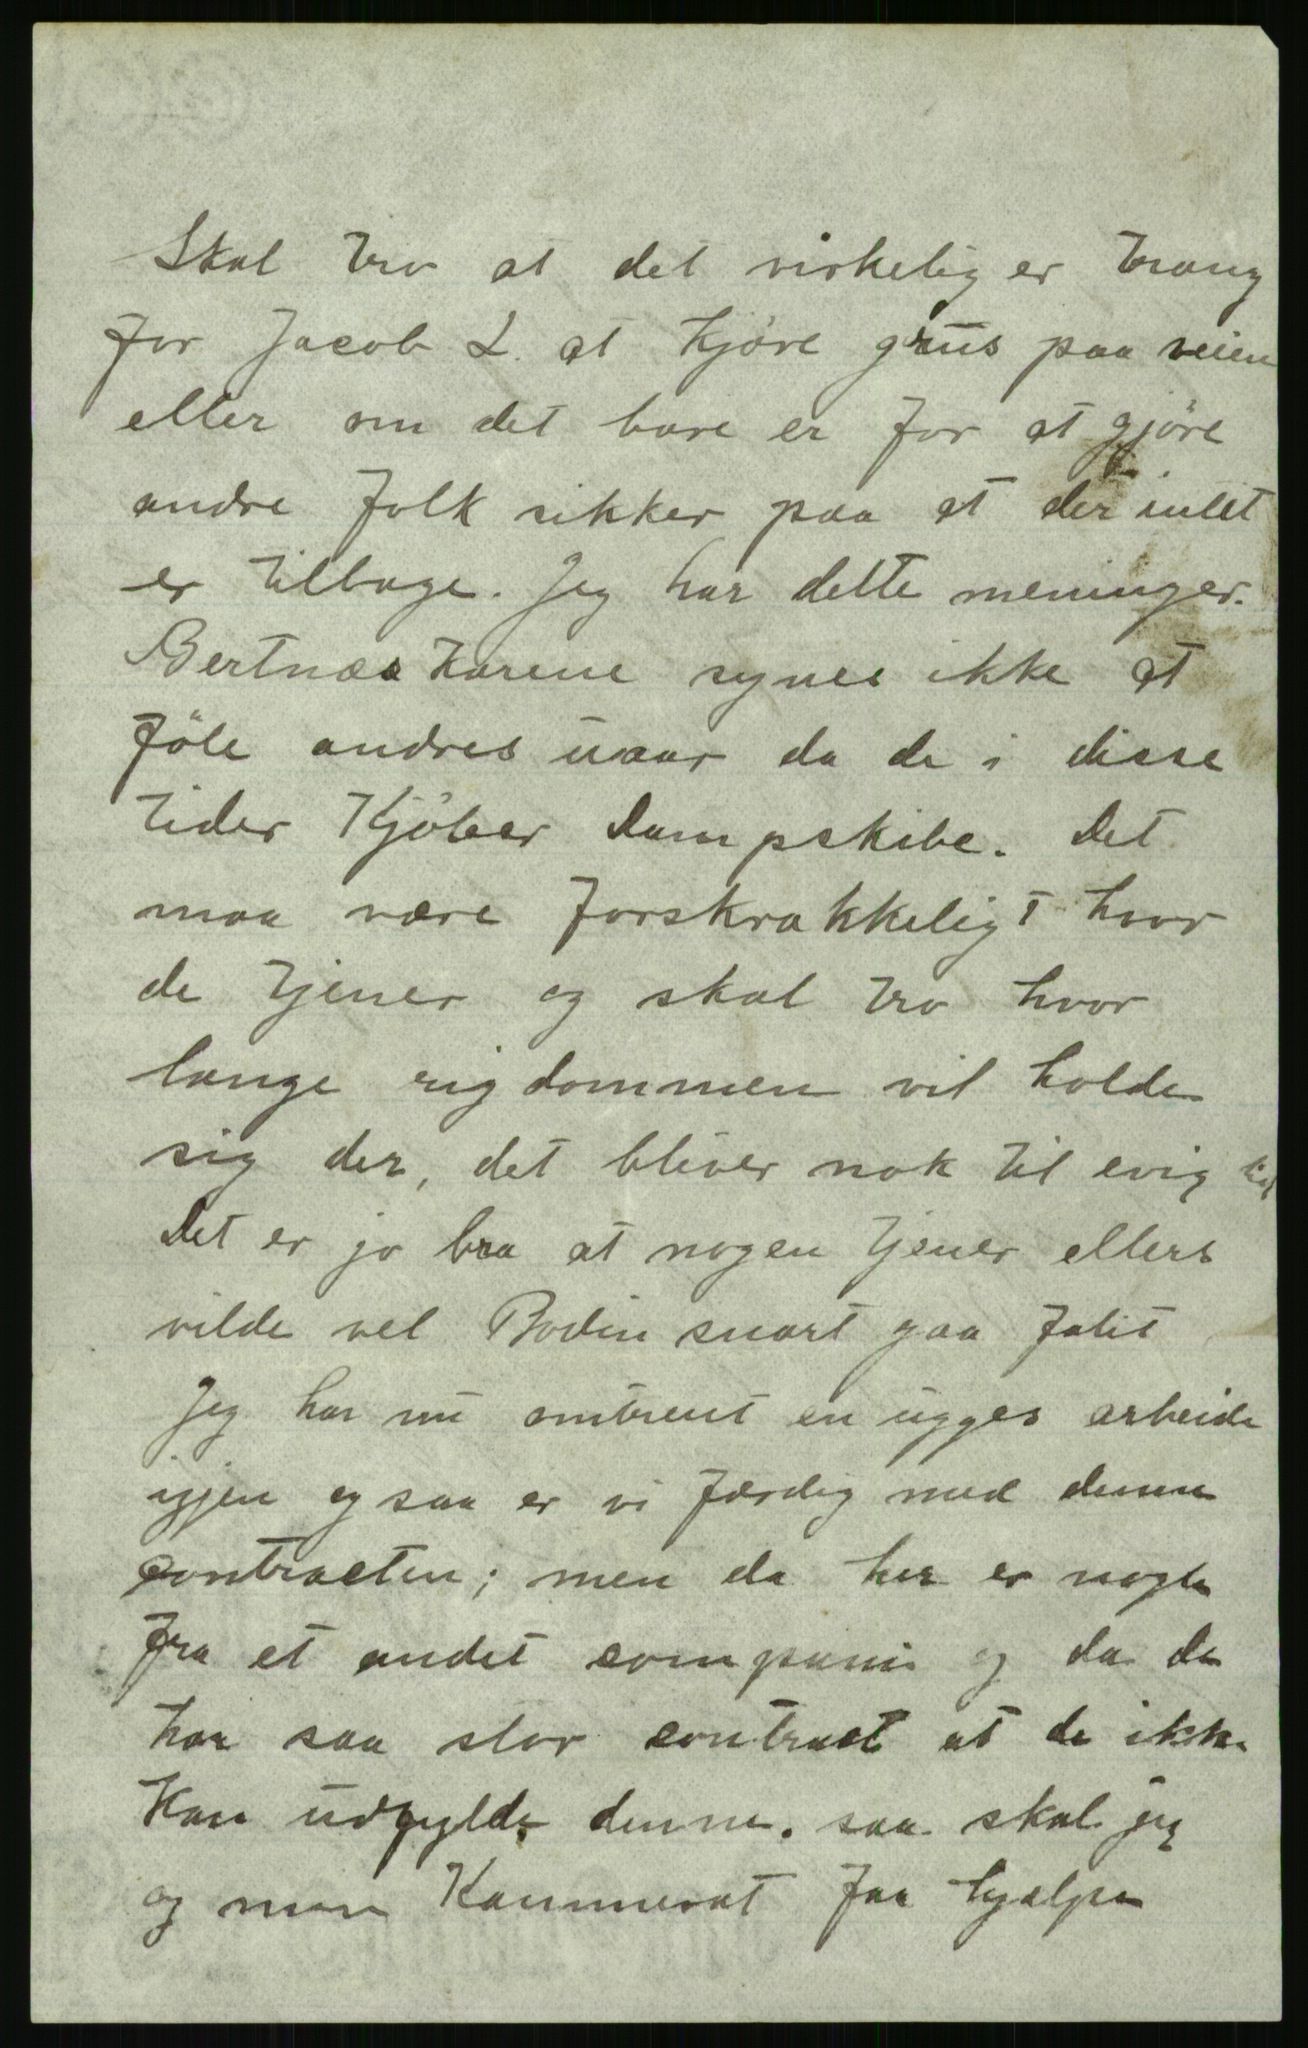 Skal tro at det virkelig er trang
for Jacob L. at kjöre grus paa veien
eller om det bare er for at gjöre
andre folk sikker paa at der intet
er tilbage. Jeg har dette meninger.
Bertnæs karene synes ikke at
föle andres uaar da de i disse
tider kjöber Dampskibe. Det
maa være forskrækkeligt hvor
de tjener og skal tro hvor
længe rigdommen vil holde
sig der, det bliver nok til evig tid
Det er jo bra at nogen tjener ellers
vilde vel Bodin snart gaa falit
Jeg har nu omtrent en ugges arbeide
igjen og saa er vi færdig med denne
contracten; men da her er nogle
fra et andet compani og da de
har saa stor contract at de ikke
kan udfylde denne. saa skal jeg
og min Kammerat faa hjælpe